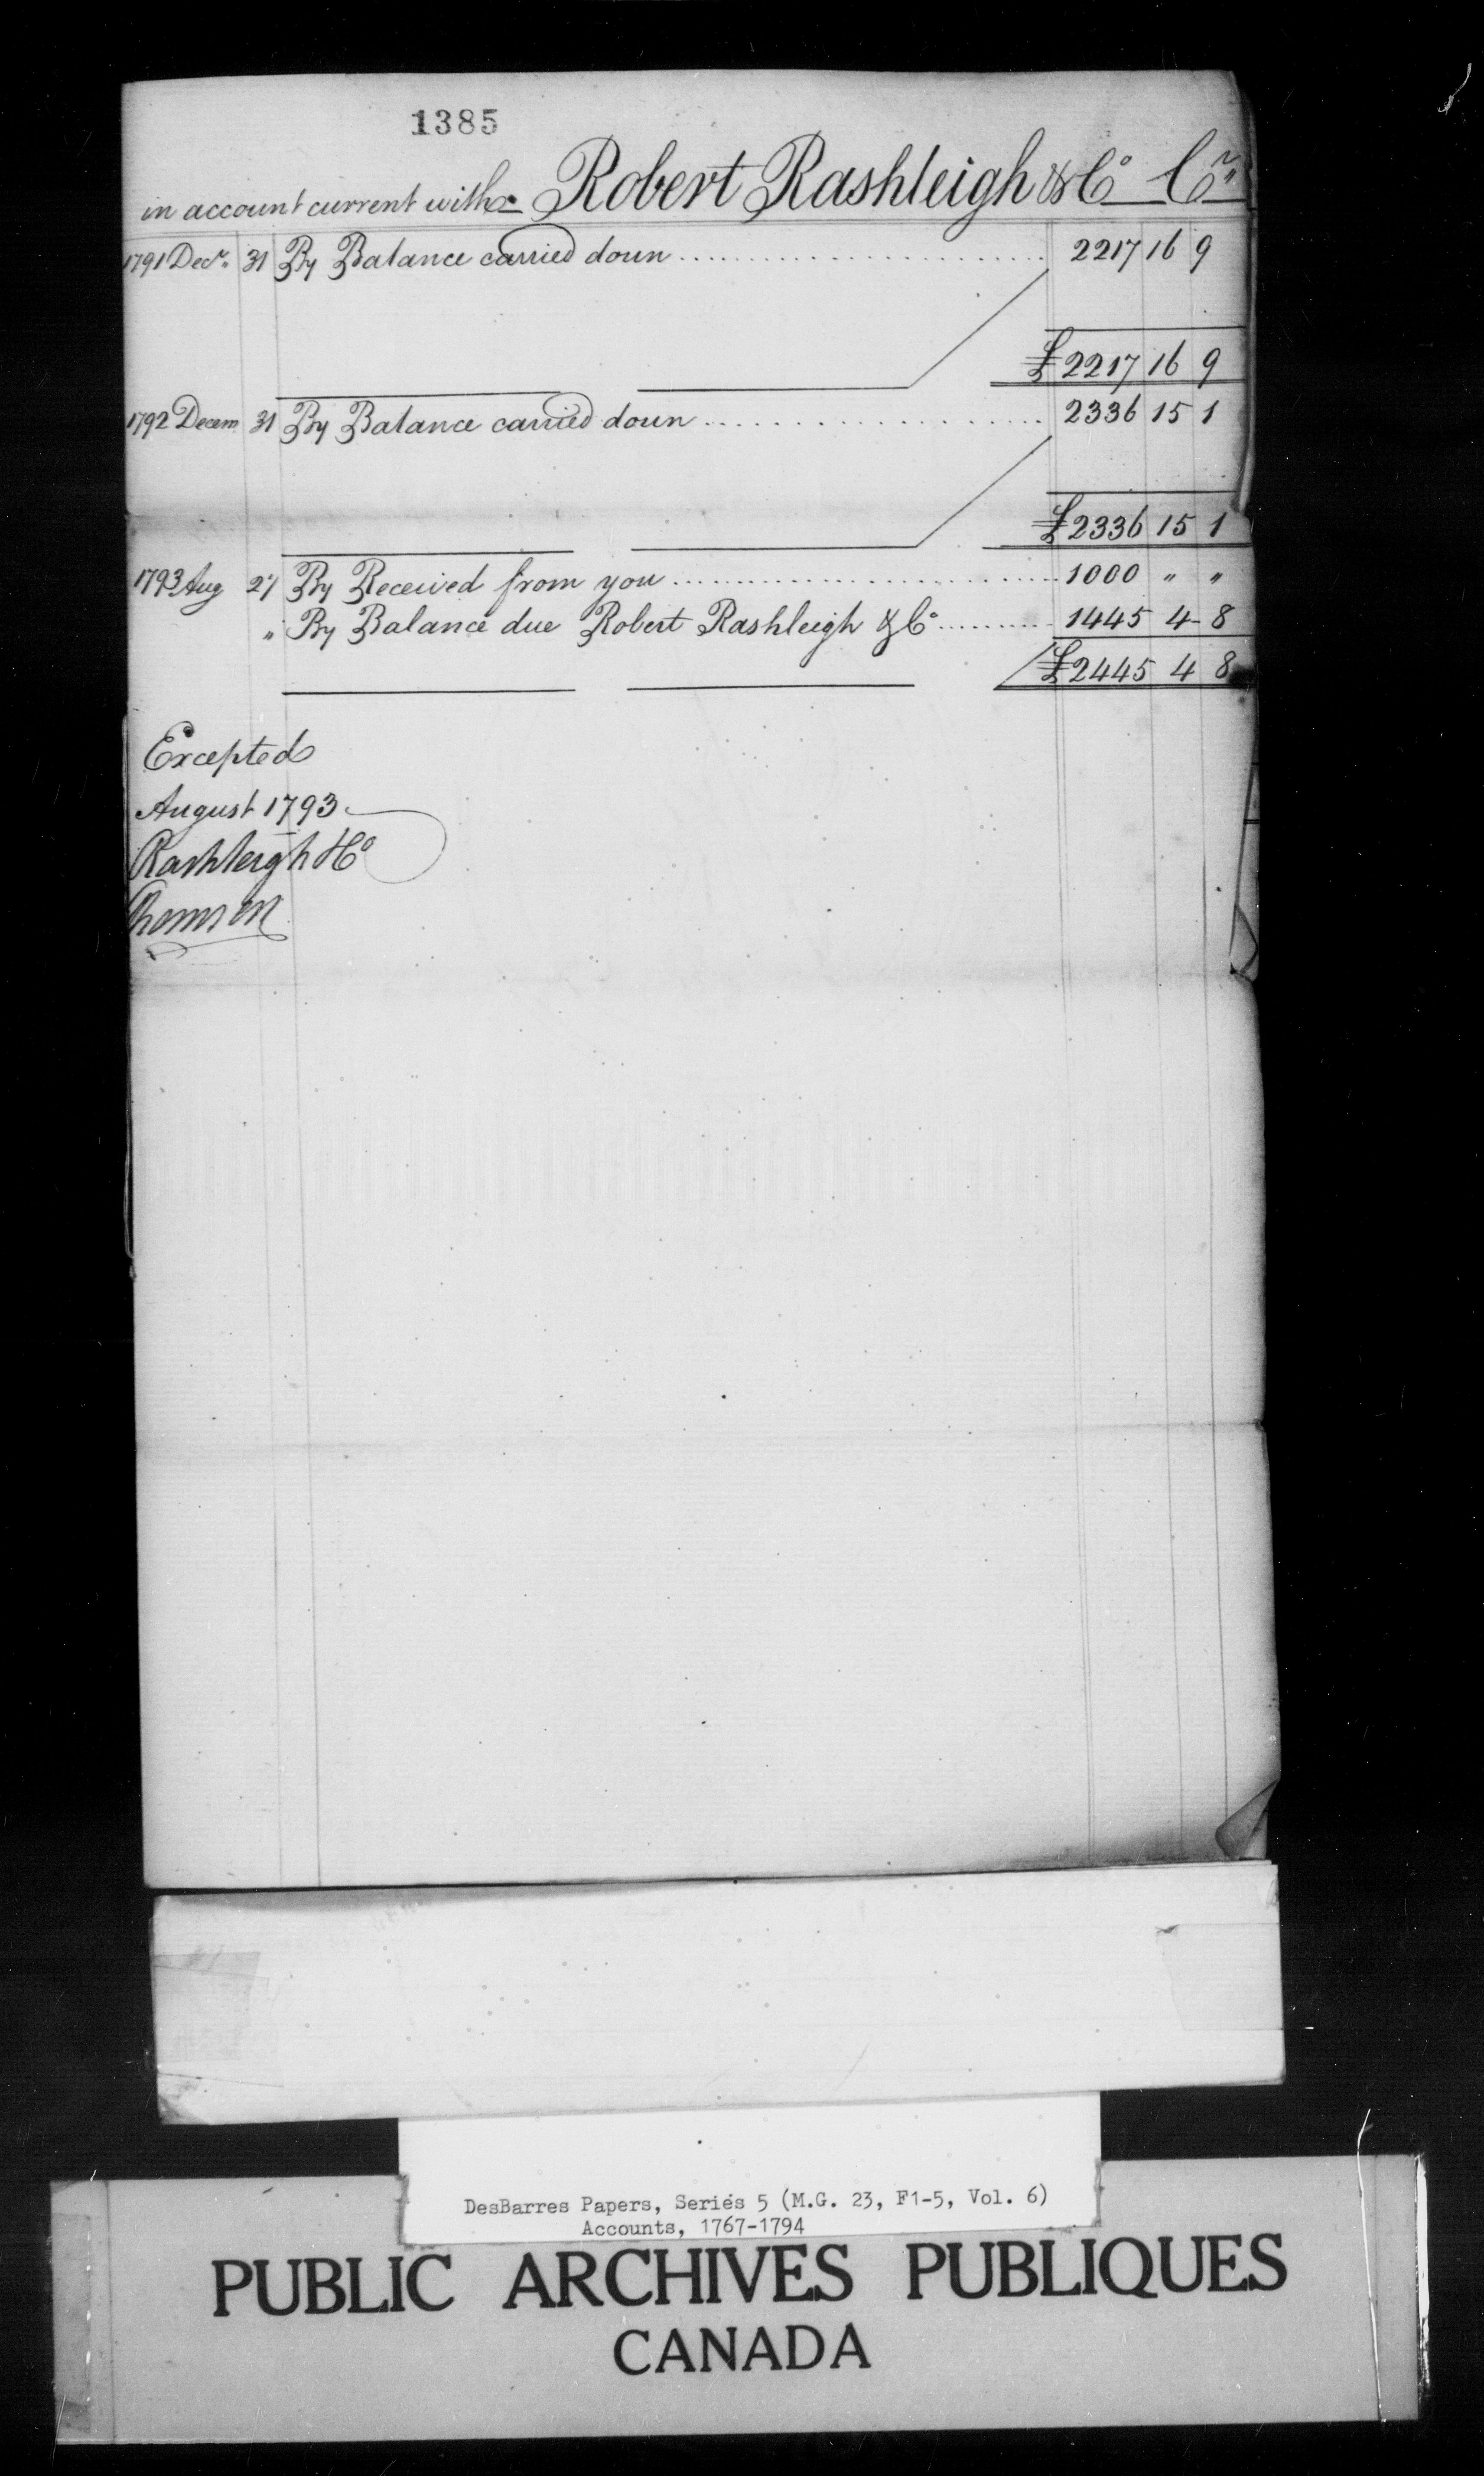 1385
in account current with Robert Rashleigh & Co Cr
1791 Decr. 31 By Balance carried down 2217 16 9
£2217 16 9
1792 Decem 31 By Balance carried down 2336 15 1
£2336 15 1
1793 Aug 27 By Received from you 1000 " "
" By Balance due Robert Rashleigh & Co 1445 4 8
£2445 4 8
Excepted
August 1793
Rashleigh & Co
DesBarres Papers, Series 5 (M.G. 23, F1-5, Vol. 6)
Accounts, 1767-1794
PUBLIC ARCHIVES PUBLIQUES
CANADA